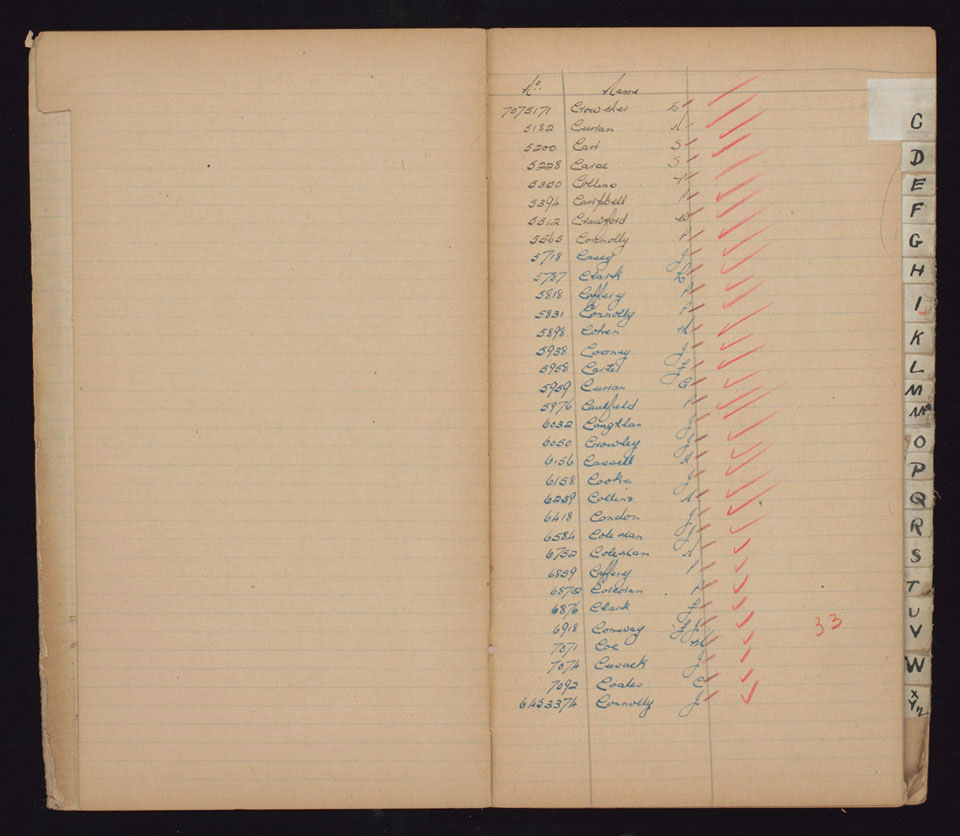 No. Name
7075171 Crowther
5182 Curran A
5200 Carr S
5228 Caree S
5300 Collins T
5394 Campbell P
5512 Crawford W
5565 Connolly P
5718 Casey J
5787 Clark
5818 Caffery P
5831 Connolly P
5898 Cohen M
5938 Cooney J
5958 Carter
5959 Curran C
5976 Caulfield P
6032 Coughlan J
6050 Crowley J
6156 Cassell A
6158 Cooke J
6239 Collins A
6418 Condon J
6584 Coleman J
6752 Coleman A
6859 Caffery
6872 Corcoran P
6876 Clark J
6918 Conway
7071 Coe M
7074 Cusack J
7092 Coates C
6453374 Connolly J
33
C
D
E
F
G
H
I
K
L
M
O
P
Q
R
S
T
U
V
W
X